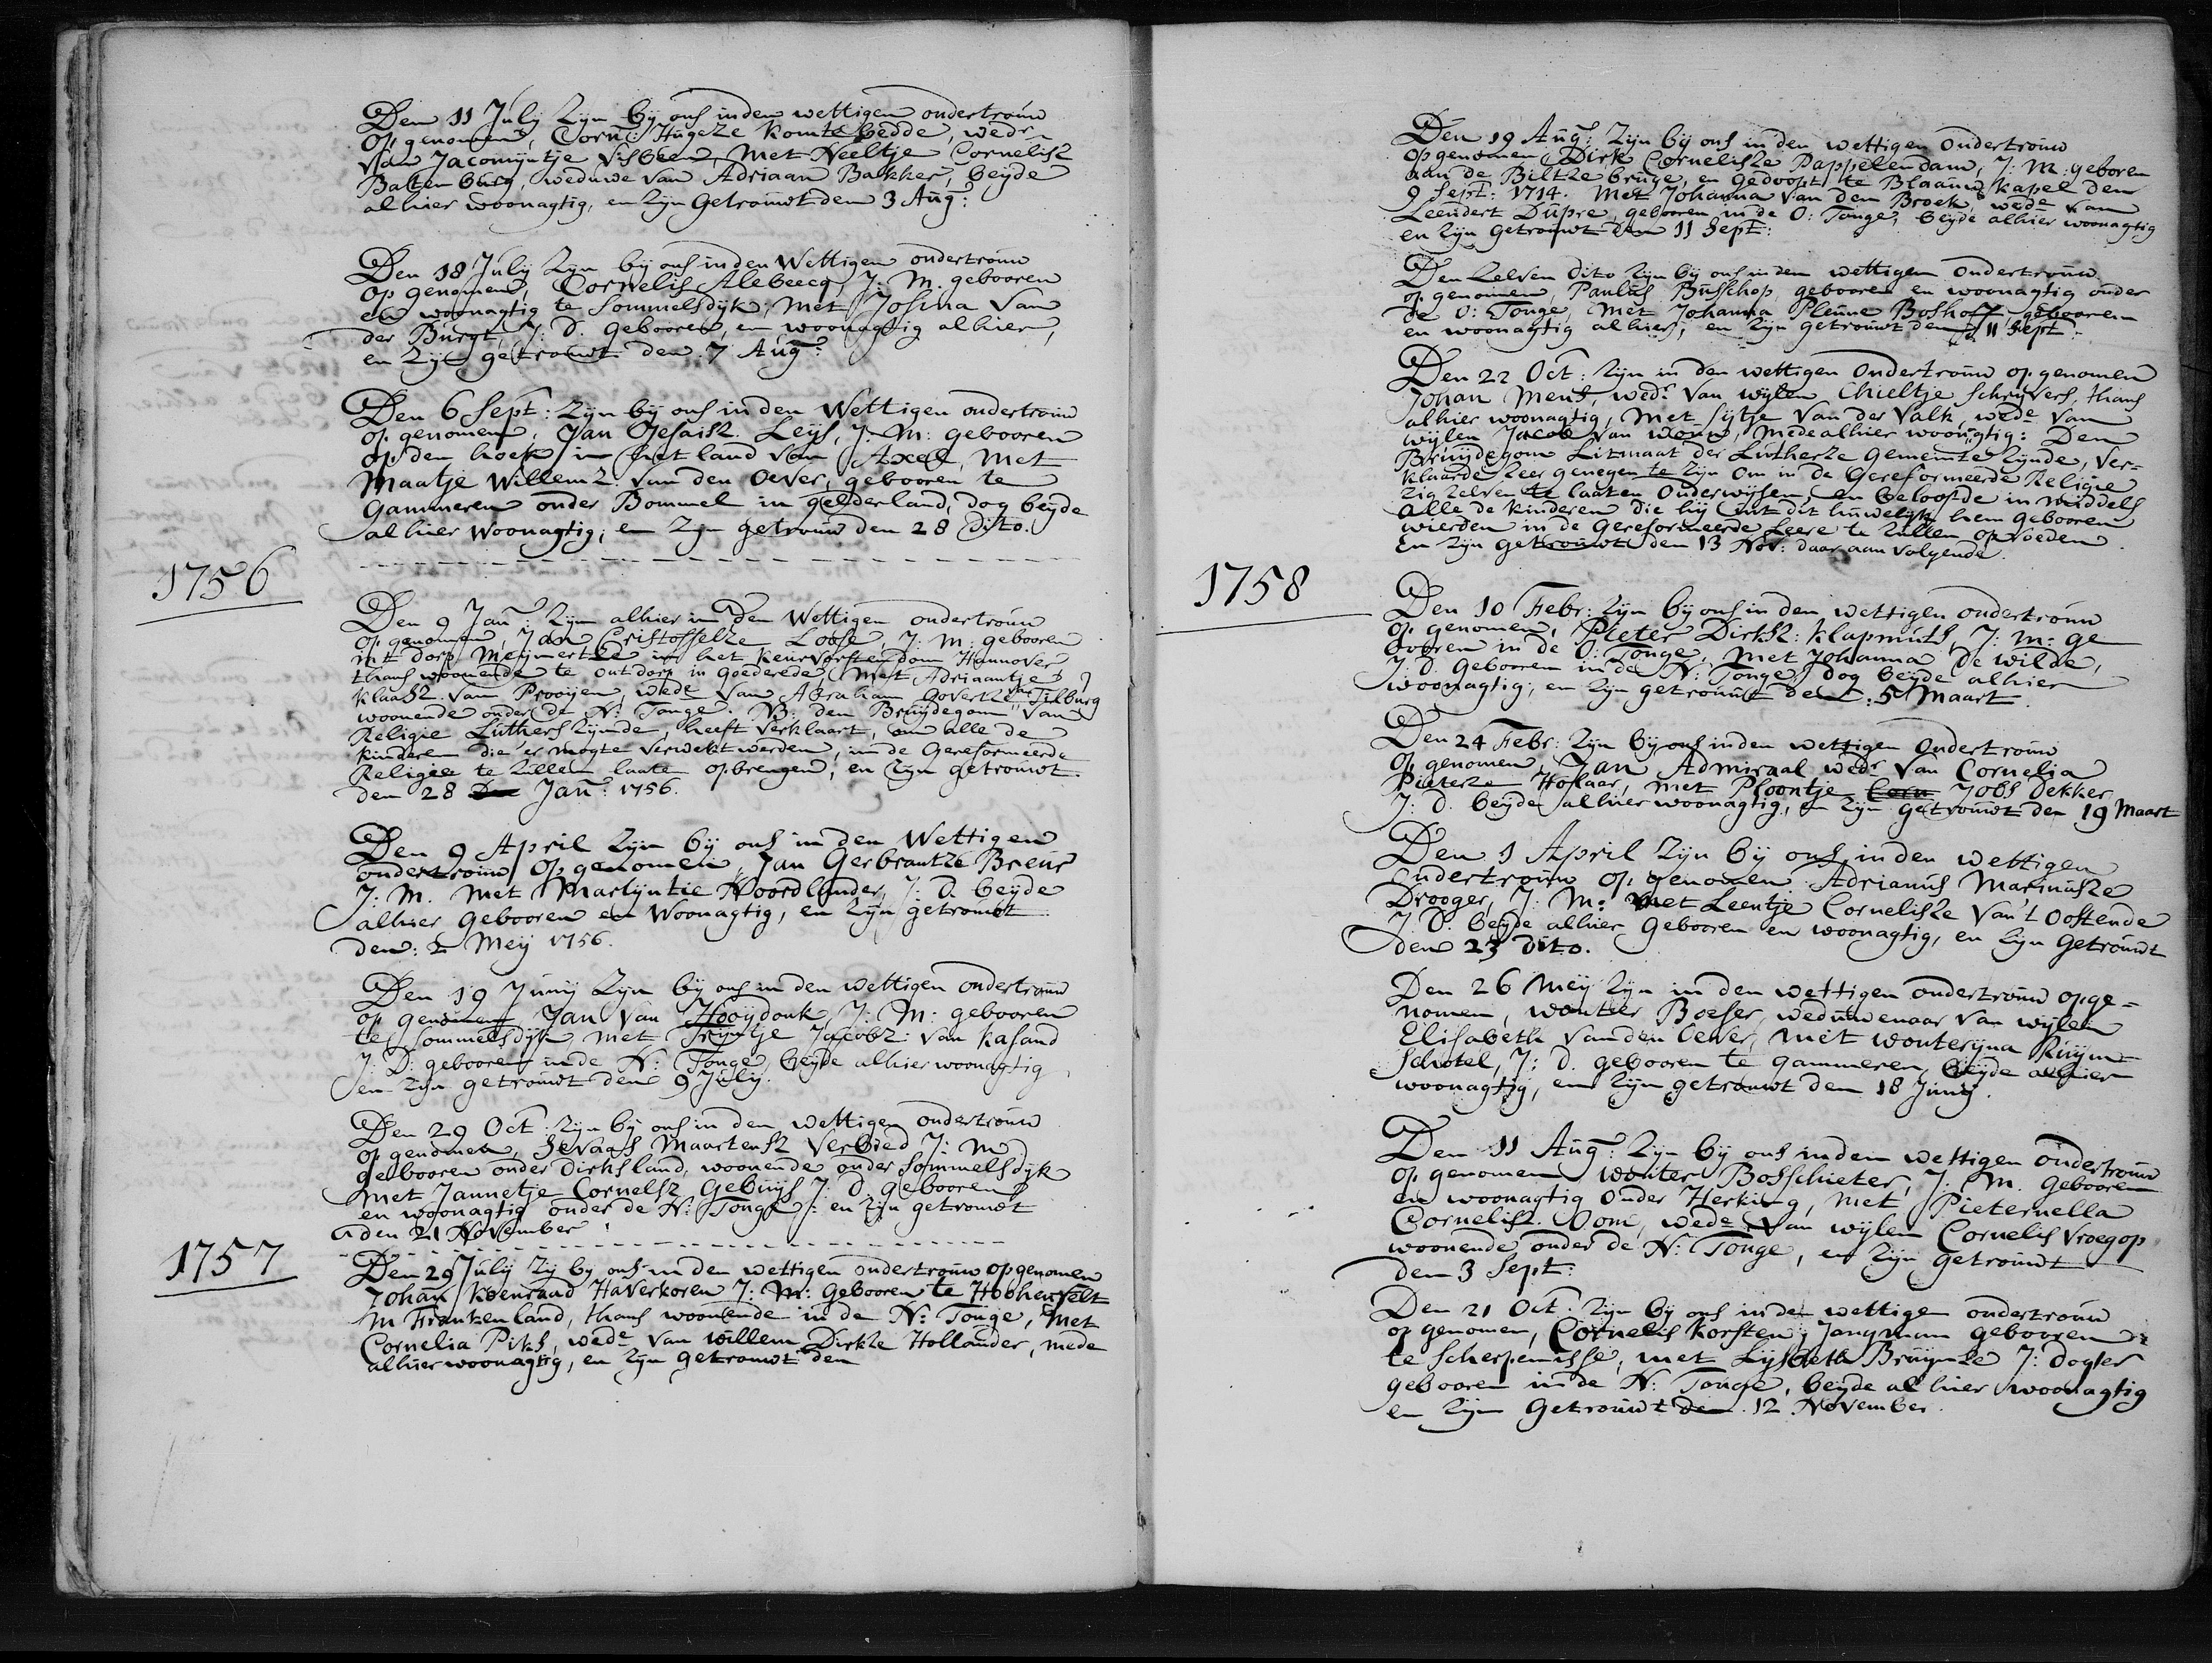 Den 11 July Zyn by ons in den wettigen ondertrouw
op genomen, Corn: Hugeze Komtebedde, wedr
van Jacomyntje Visbeen, Met Neeltje Cornelisz
Baltenburg, weduwe van Adriaan Bakker, beyde
alhier woonagtig, en Zyn Getrouwt den 3 Aug:
Den 18 July Zyn by ons in den Wettigen ondertrouw
op genomen, Cornelis Alebeecq J: M. gebooren
en woonagtig te Sommelsdyk, Met Josina Van
der Burgt, J: D. Gebooren, en woonagtig alhier,
en Zyn getrouwt den 7 Aug:
Den 6 Sept: Zyn by ons in den Wettigen ondertrouw
op genomen, Jan Jesaisz. Leys, J: M: gebooren
op den hoek in het land van Axel, Met
Maatje Willemz. Van den Oever, gebooren te
Gammeren onder Bommel in gelderland, dog beyde
alhier Woonagtig, en Zyn getrouw den 28 Dito.
1756
Den 9 Jan: Zyn alhier in den Wettigen ondertrouw
op genomen, Jan Cristoffelze Loose, J: M: gebooren
int dorp Meymertze in het keurvorstendom Hannover
thans woonende te outdorp in goederede, Met Adriaantje
Klaasz. Van Prooijen, wede van Abraham Govertze van Tilburg
woonende onder de N: Tonge. NB: den Bruydegom Van
Religie Luthers Zynde, heeft verklaart, om alle de
kinderen die er mogte verwekt werden, in de Gereformeerde
Religie te Zullen laate opbrengen, en Zyn getrouwt.
den 28 Jan: 1756.
Den 9 April Zyn by ons in den Wettigen
ondertrouw op genomen, Jan Gerbrantze Breur
J: M. Met Marlyntie Noordlander, J: D. beyde
alhier Gebooren en Woonagtig, en Zyn getrouwt
den: 2 Mey 1756.
Den 19 Juny Zyn by ons in den wettigen ondertrouw
op genomen Jan Van Hooydonk J: M: gebooren
te Sommelsdyk met Tryntje Jacobz: Van Kasand
J: D: gebooren in de N: Tonge, beyde alhier woonagtig
en Zyn getrouwt den 9 July.
Den 29 Oct: Zyn by ons in den wettigen ondertrouw
op genomen, Sevaas Maartensz Verbied J: M
gebooren onder Dirksland, woonende onder Sommelsdyk
Met Jannetje Cornelsz Gebuys J: D. gebooren
en woonagtig onder de N: Tonge: en Zyn getrouwt
den 21 November
1757
Den 29 July Zy by ons in den wettigen ondertrouw opgenomen
Johan Koenraad Haverkoren J: M: Gebooren te Hochenvelt
in Frankenland, thans woonende in de N: Tonge, Met
Cornelia Piks, wede van Willem Dirkze Hollander, mede
alhier woonagtig, en Zyn getrouwt den
Den 19 Aug: Zyn by ons in den wettigen Ondertrouw
opgenomen Dirk Cornelisze Pappelendam, J: M: geboren
aan de Biltze bruge, en Gedoopt te Blaauw kapel den
9 Sept: 1714. Met Johanna van den Broek, wede van
Leendert Dupre, gebooren in de O: Tonge, beyde alhier woonagtig
en Zyn getrouwt den 11 Sept:
Den Zelven Dito Zyn by ons in den wettigen ondertrouw
op genomen, Paulus Busschop gebooren en woonagtig onder
de O: Tonge, Met Johanna Pleune Boshoff, gebooren
en woonagtig alhier, en Zyn getrouwt den 11 Sept:
Den 22 Oct: Zyn in den wettigen Ondertrouw op genomen
Johan Ment, wedr Van wylen Chieltje Schryvers, thans
alhier woonagtig, Met Sytje Van der Valk, wede Van
wylen Jacob Van, mede alhier woonagtig: Den
Bruydegom Litmaat der Lutherze Gemeente Zynde, ver=
klaarde Zeer genegen te Zyn om in de Gereformeerde Religie
Zig Zelven te laaten Onderwysen, en beloofde in middels
Alle de kinderen die hy uit dit huwelyk hem gebooren
wierden in de Gereformeerde Leere te Zullen opvoeden
En Zyn getrouwt den 13 Nov: daar aan volgende.
1758
Den 10 Febr: Zyn by ons in den wettigen ondertrouw
op genomen, Pieter Dirksz: Klapmuts, J: M: ge
booren in de O: Tonge, Met Johanna De wilde,
J: D. Gebooren in de N: Tonge, dog beyde alhier
woonagtig, en Zyn getrouwt de 5 Maart.
Den 24 Febr: Zyn by ons in den wettigen Ondertrouw
op genomen, Jan Admiraal wedr Van Cornelia
Pieterze Hoflaar, met Ploontje Corn Jobs Dekker
J: D. beyde alhier woonagtig, en Zyn getrouwt den 19 Maart
Den 1 April Zyn by ons in den wettigen
Ondertrouw op genomen Adrianus Marinusze
Drooger, J: M: met Leentje Cornelisze Van't Oostende
J: D. beyde alhier Gebooren en woonagtig, en Zyn Getrouwt
den 23 Dito.
Den 26 Mey Zyn in den wettigen ondertrouw opge=
nomen, Wouter Boeser, weduwenaar van wylen
Elisabeth Van den Oever, met Wouteryna Ruym=
schotel, J: D. gebooren te gammeren, beyde alhier
woonagtig, en Zyn getrouwt den 18 Juny.
Den 11 Aug: Zyn by ons in den wettigen ondertrouw
op genomen Wouter Bosschieter, J: M. Gebooren
en woonagtig onder Herking, Met Pieternella
Cornelisz. Oom, wede van wylen Cornelis Vroegop
woonende onder de N: Tonge, en Zyn getrouwt
den 3 Sept:
Den 21 Oct: Zyn by ons in de wettigen ondertrouw
op genomen, Cornelis Korsten, Jongman gebooren
te Scherpenisse, met Lysbeth Bruynze J: dogter
gebooren in de N: Tonge, beyde alhier woonagtig
en Zyn Getrouwt den 12 November.